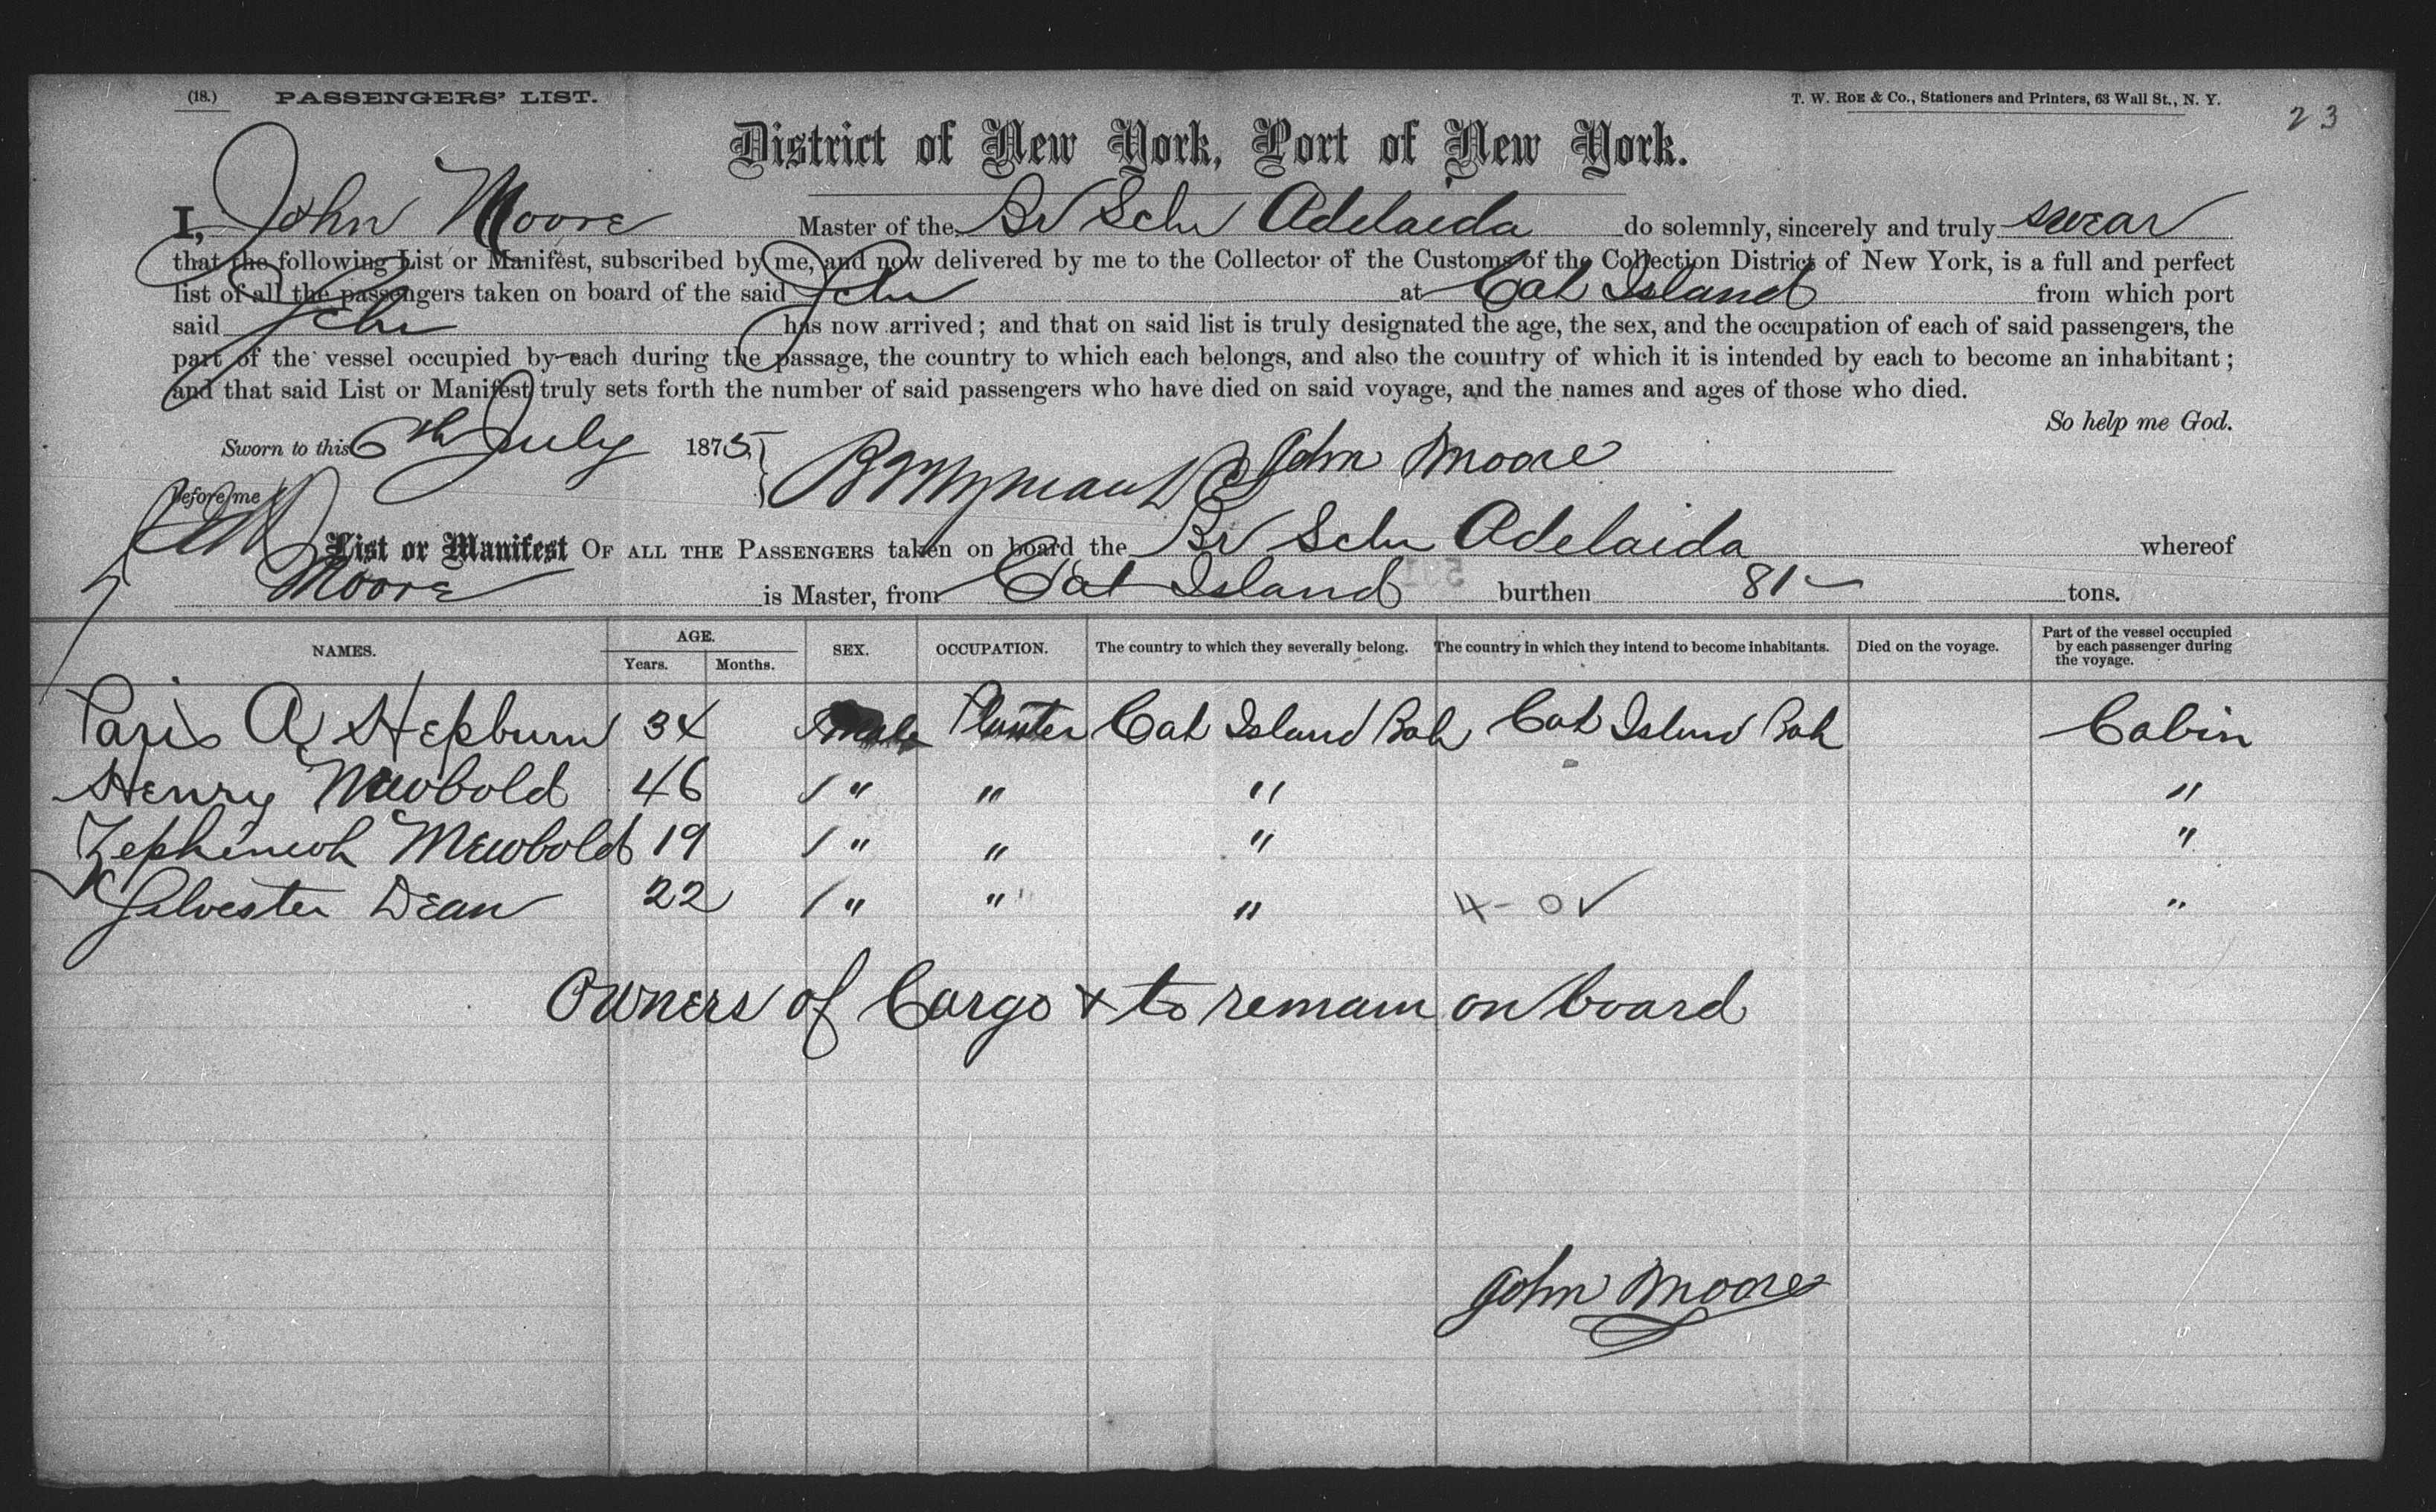 (18.) PASSENGERS' LIST. T. W. ROE & Co., Stationers and Printers, 63 Wall St., N. Y. 23
District of New York, Port of New York.
I, John Moore Master of the Br Schr Adelaida do solemnly, sincerely and truly swear
that the following List or Manifest, subscribed by me, and now delivered by me to the Collector of the Customs of the Collection District of New York, is a full and perfect
list of all the passengers taken on board of the said Schr at Cat Island from which port
said Schr has now arrived; and that on said list is truly designated the age, the sex, and the occupation of each of said passengers, the
part of the vessel occupied by each during the passage, the country to which each belongs, and also the country of which it is intended by each to become an inhabitant;
and that said List or Manifest truly sets forth the number of said passengers who have died on said voyage, and the names and ages of those who died.
So help me God.
Sworn to this 6th July 1875, John Moore
before me
List or Manifest OF ALL THE PASSENGERS taken on board the Br Schr Adelaida whereof
Moore is Master, from Cat Island burthen 81 tons.
NAMES. AGE. Years. Months. SEX. OCCUPATION. The country to which they severally belong. The country in which they intend to become inhabitants. Died on the voyage. Part of the vessel occupied by each passenger during the voyage.
Paris A Hepburn 34 male Planter Cat Island Bah Cat Island Bah Cabin
Henry Newbold 46 / " " " "
Newbold 19 / " " " "
Silvester Dean 22 / " " " 4 - 0 ✓ "
Owners of Cargo & to remain on board
John Moore